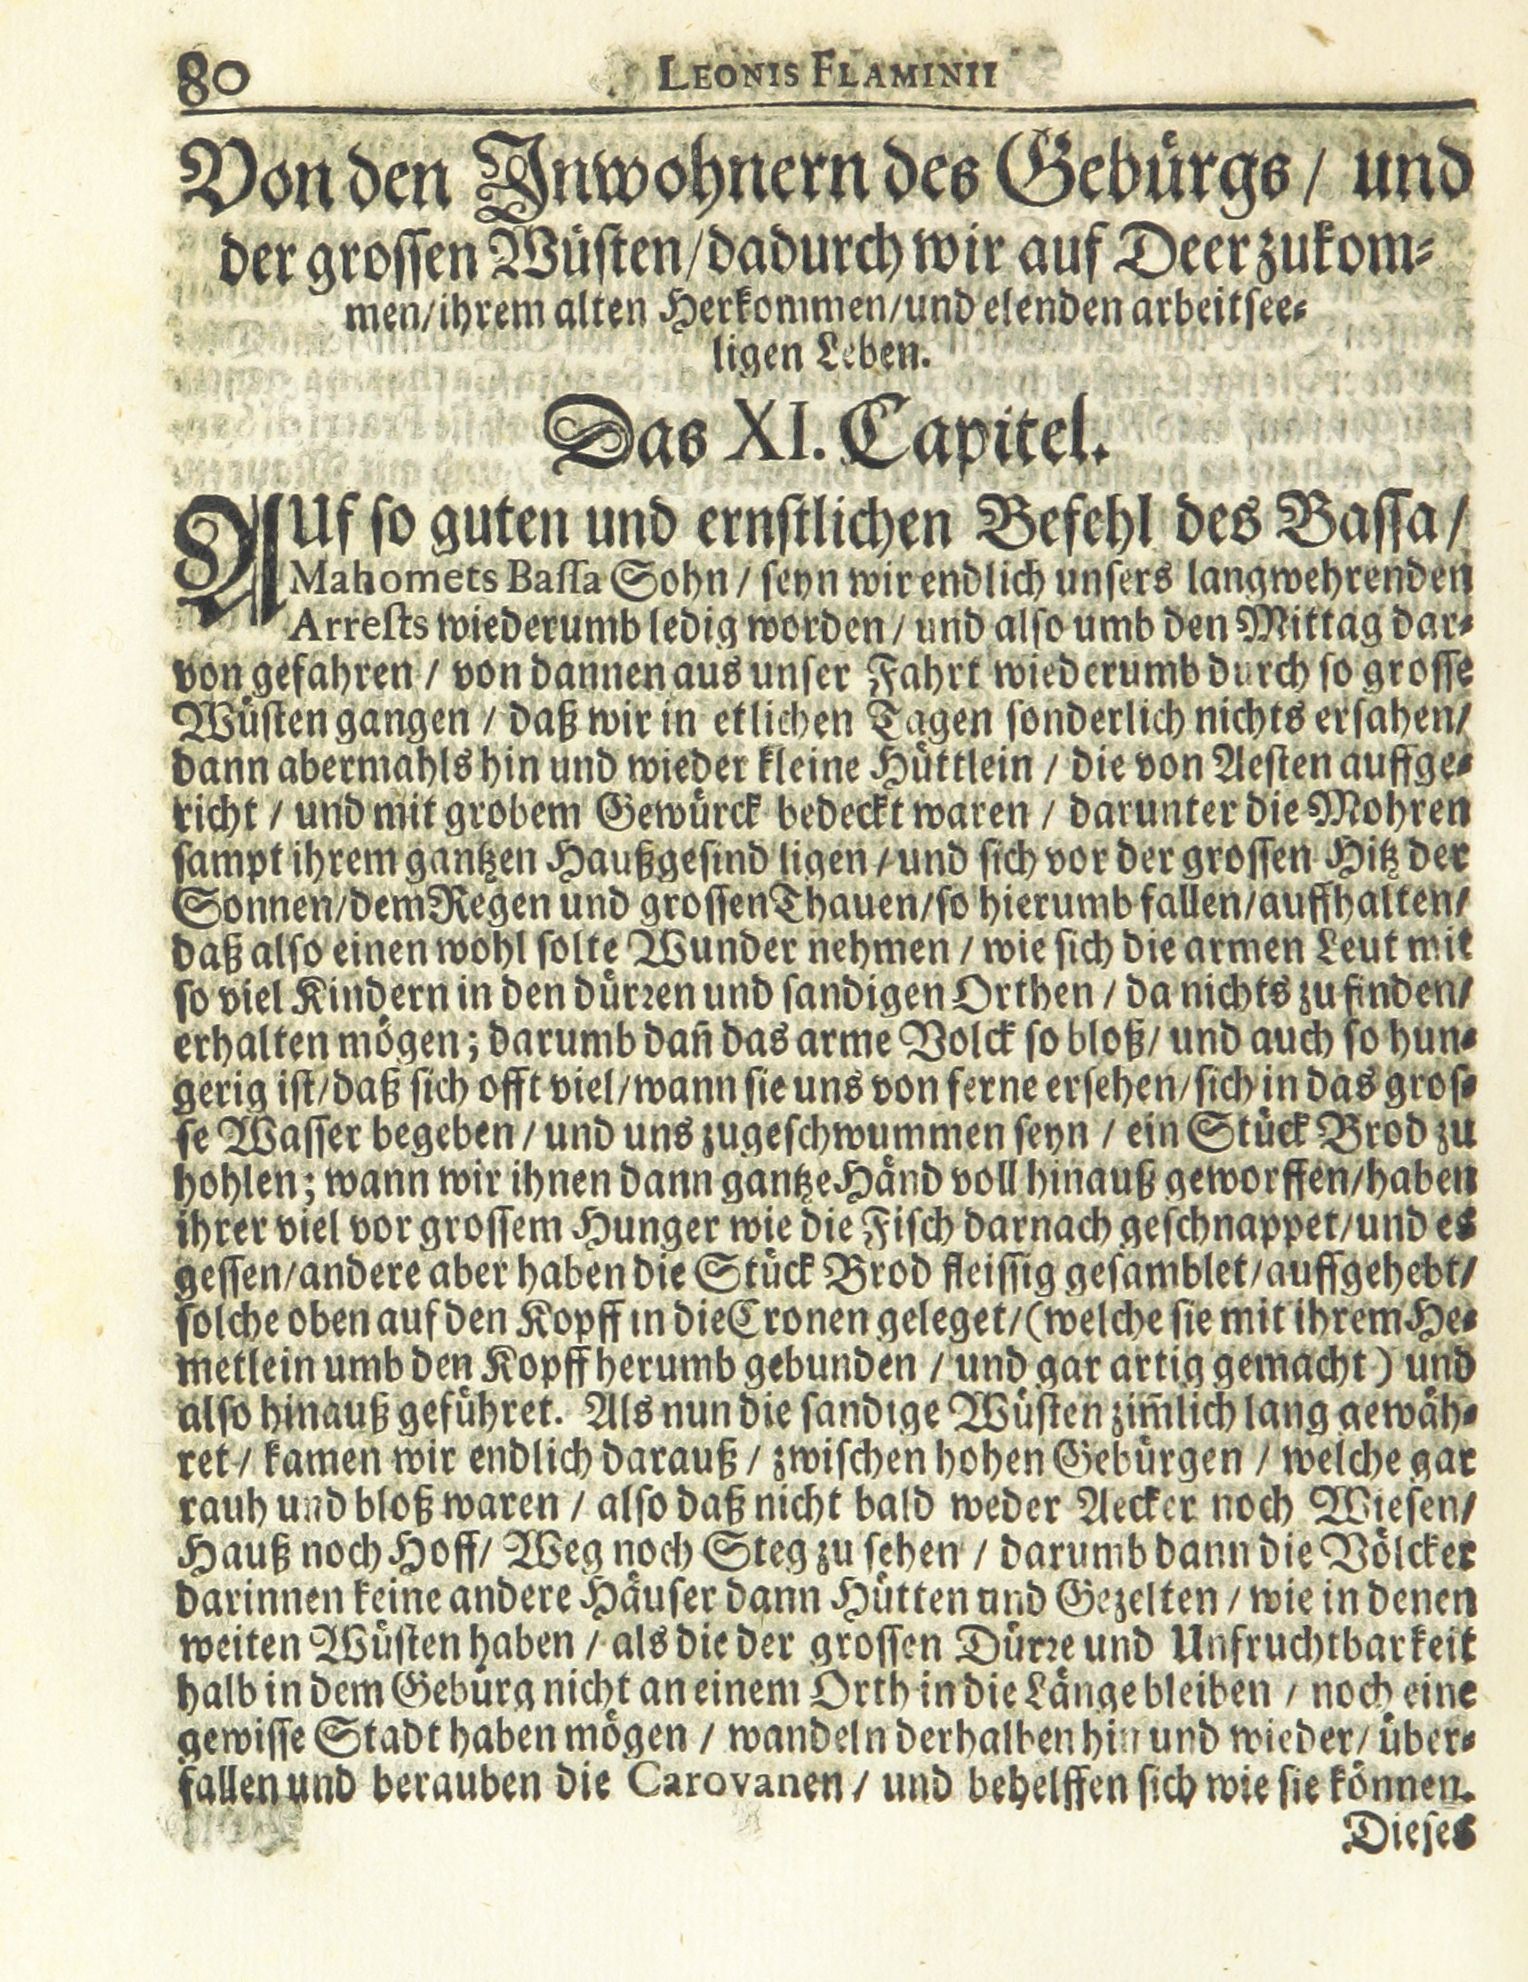 80 LEONIS FLAMINII
Von den Inwohnern des Gebürgs / und
der grossen Wüsten/dadurch wir auf Deer zukom-
men/ihrem alten Herkommen/und elenden arbeitsee-
ligen Leben.
Das XI. Capitel.
AUf so guten und ernstlichen Befehl des Bassa /
Mahomets Bassa Sohn / seyn wir endlich unsers langwehrenden
Arrests wiederumb ledig worden / und also umb den Mittag dar-
von gefahren / von dannen aus unser Fahrt wiederumb durch so grosse
Wüsten gangen / daß wir in etlichen Tagen sonderlich nichts ersahen/
dann abermahls hin und wieder kleine Hüttlein / die von Aesten auffge-
richt / und mit grobem Gewürck bedeckt waren / darunter die Mohren
sampt ihrem gantzen Haußgesind ligen / und sich vor der grossen Hitz der
Sonnen/dem Regen und grossen Thauen/so hierumb fallen/auffhalten/
daß also einen wohl solte Wunder nehmen / wie sich die armen Leut mit
so viel Kindern in den dürren und sandigen Orthen / da nichts zu finden/
erhalten mögen; darumb dañ das arme Volck so bloß/ und auch so hun-
gerig ist/daß sich offt viel/wann sie uns von ferne ersehen/sich in das gros-
se Wasser begeben / und uns zugeschwummen seyn / ein Stück Brod zu
hohlen; wann wir ihnen dann gantze Händ voll hinauß geworffen/haben
ihrer viel vor grossem Hunger wie die Fisch darnach geschnappet/und es
gessen/andere aber haben die Stück Brod fleissig gesamblet/auffgehebt/
solche oben auf den Kopff in die Cronen geleget/(welche sie mit ihrem He-
metlein umb den Kopff herumb gebunden / und gar artig gemacht) und
also hinauß geführet. Als nun die sandige Wüsten zim̃lich lang gewäh-
ret / kamen wir endlich darauß / zwischen hohen Gebürgen / welche gar
rauh und bloß waren / also daß nicht bald weder Aecker noch Wiesen/
Hauß noch Hoff/ Weg noch Steg zu sehen / darumb dann die Völcker
darinnen keine andere Häuser dann Hütten und Gezelten / wie in denen
weiten Wüsten haben / als die der grossen Dürre und Unfruchtbarkeit
halb in dem Gebürg nicht an einem Orth in die Länge bleiben / noch eine
gewisse Stadt haben mögen / wandeln derhalben hin und wieder/ über-
fallen und berauben die Carovanen / und behelffen sich wie sie können.
Dieses